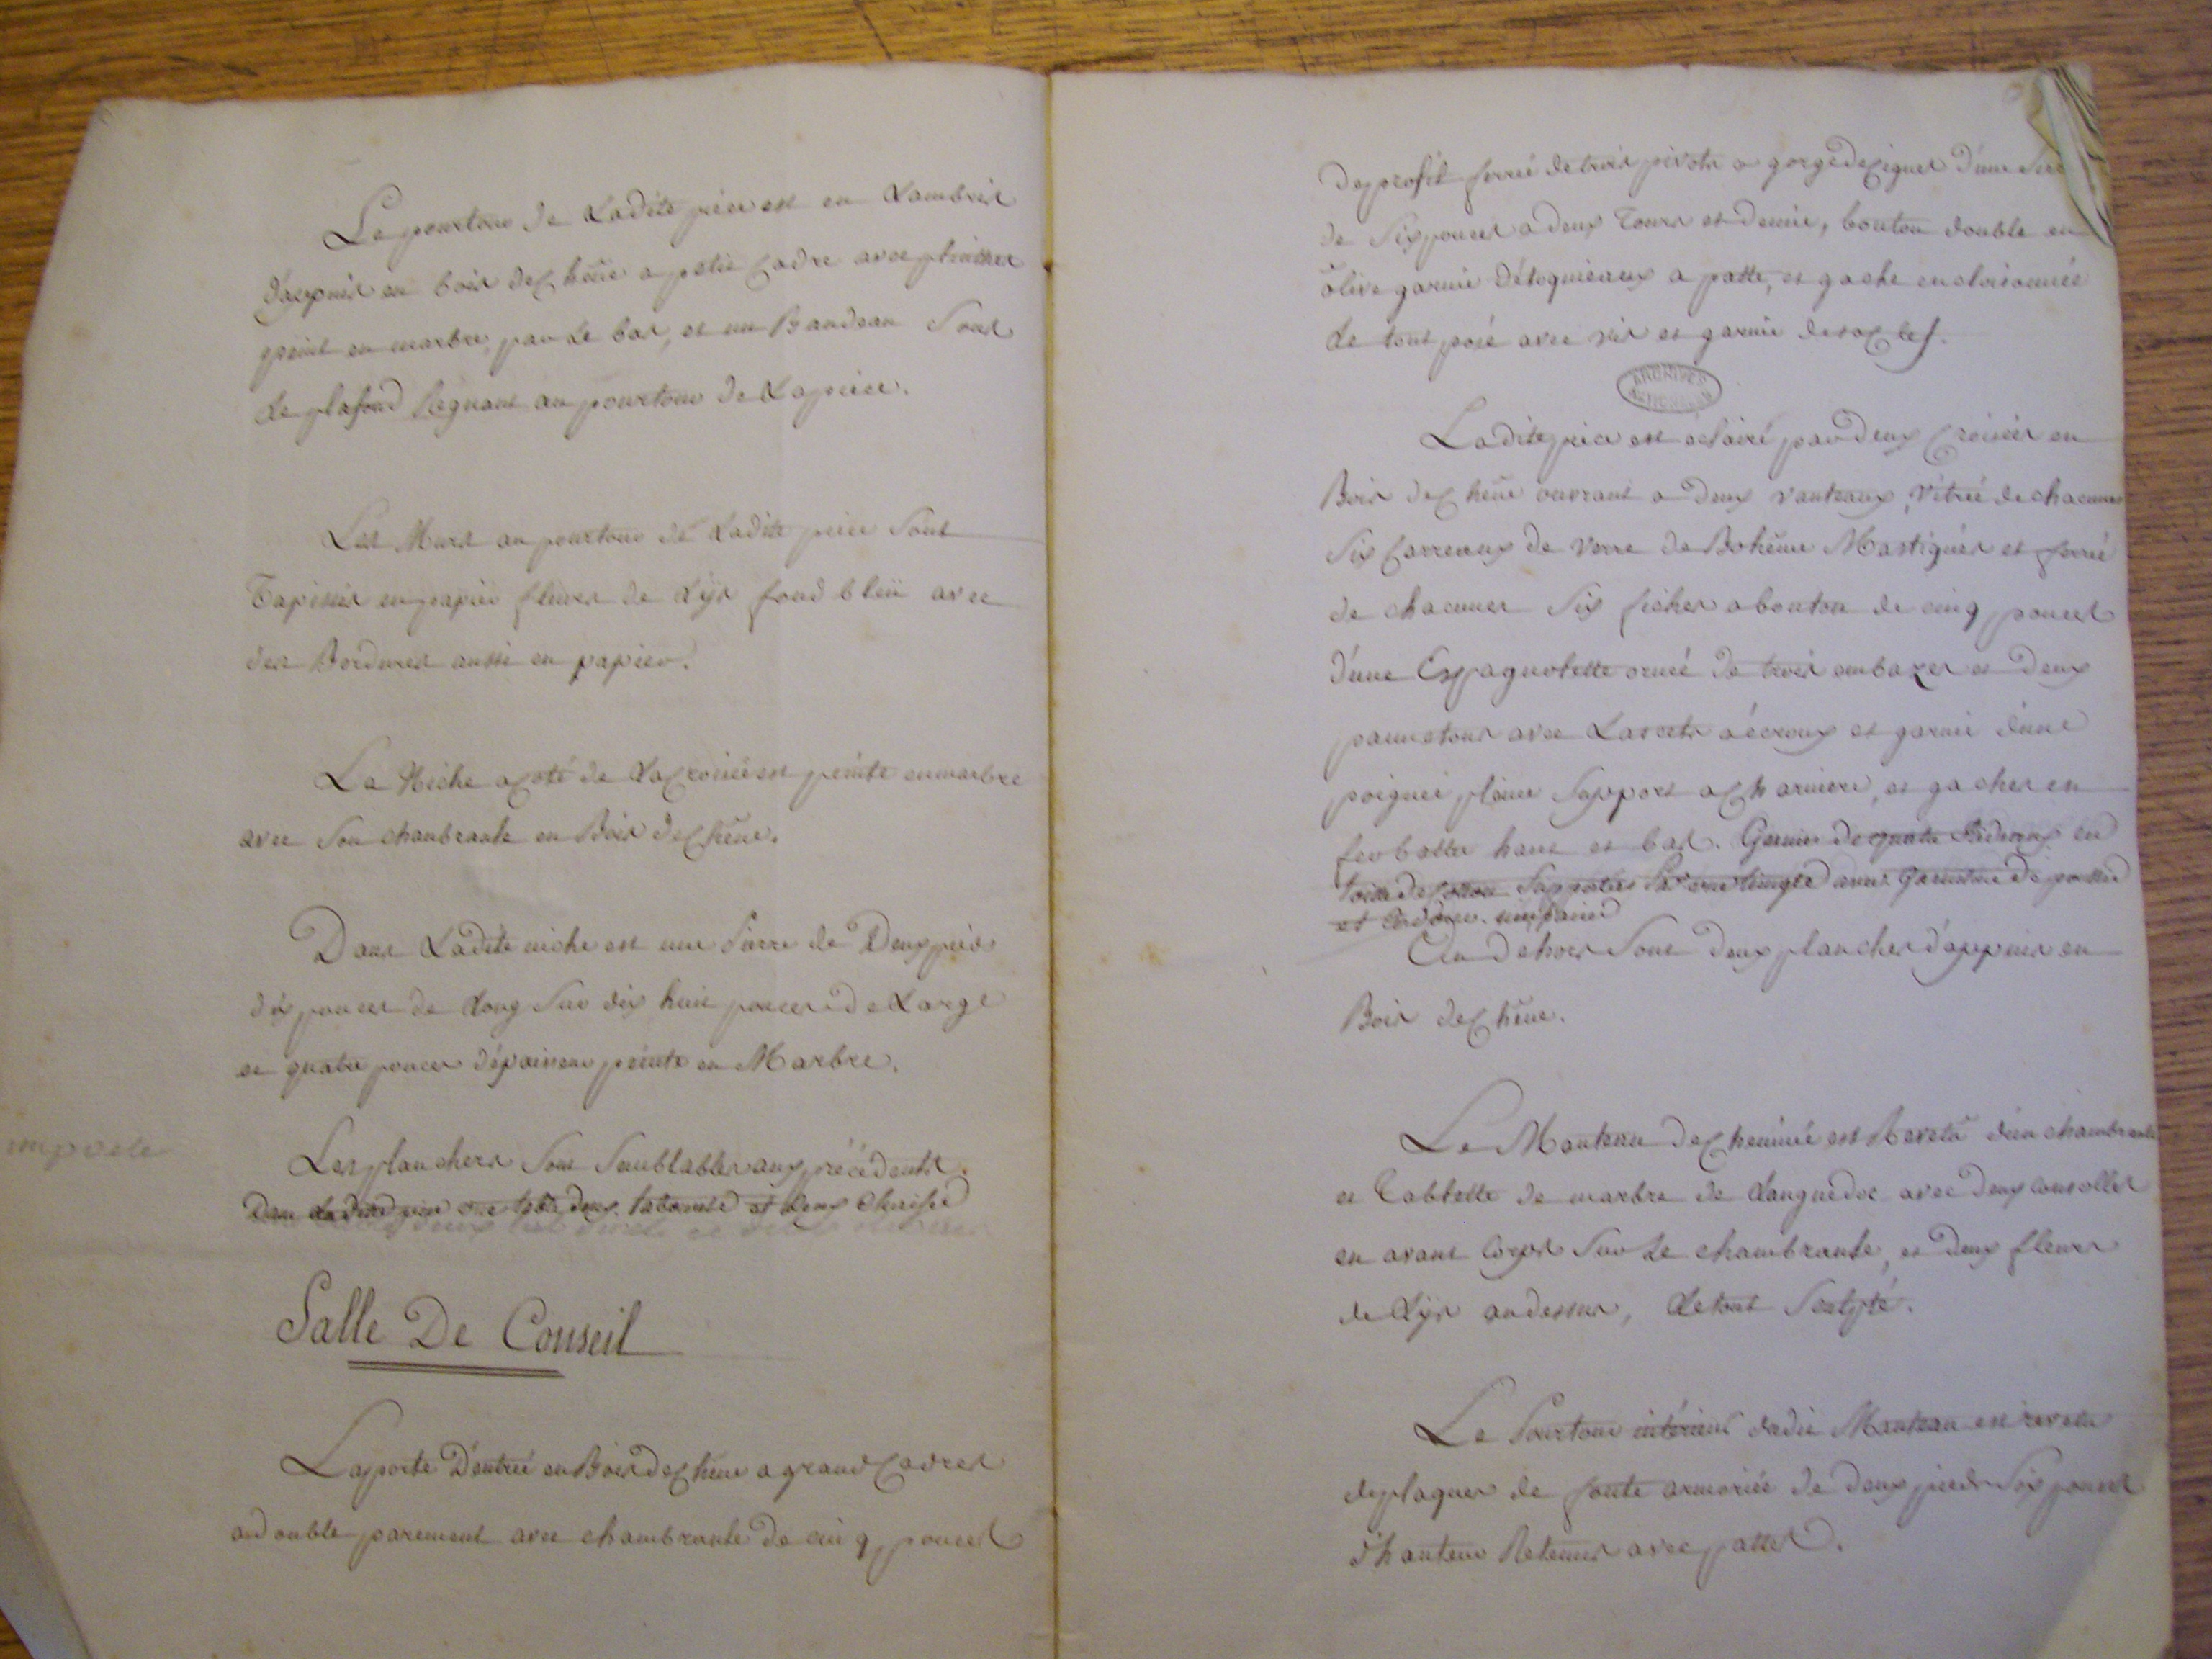 Le pourtour de Ladite piece est en Lambris
d'appuis en bois de Chêne a petit Cadre avec plinthes
peint en marbre, par Le bas, et un Bandeau Sous
Le plafond Regnant au pourtour de La piece.
Les Murs au pourtour de Ladite piece Sont
Tapissés en papier fleurs de Lÿs fond bleü avec
des Bordures aussi en papier.
La Niche a Coté de La Croisée est peinte en marbre
avec Son chambranle en Bois de Chêne.
Dans Ladite niche est une Pierre de Deux pieds
dix pouces de Long Sur dix huit pouces de Large
et quatre pouces d'épaisseur peinte en Marbre.
imposte
Les planchers Sont Semblables aux précédents.
Dans Ladite piece une table deux tabourets et deux Chaises
Salle De Conseil
La porte D'entreé en Bois de Chêne a grand Cadres
a double parement avec chambranle de cinq pouces
de profil ferreé de trois pivots a gorge de Cignes d'une
de Six pouces a deux Tours et demie, bouton double en
olive garnie d'étoquieaux a patte, et gache encloisonneé
Le tout posé avec vis et garnie de sa Clef.
ARCHIVES NATIONALES
Ladite piece est éclairé par deux Croisées en
Bois de Chêne ouvrant a deux vanteaux, vitreé de chacunes
Six Carreaux de Verre de Bohême Mastiqués et ferreé
de chacunes Six fiches a bouton de cinq pouces
d'une Espagnolette orneé de trois embazes et deux
pannetons avec Lacets a écroux et garnie d'une
poignée pleine Support a Charniere, et gaches en
haut et bas. Garnies de quatre Rideaux en
toile de Cotton Supportés Par une tringle avec Garniture de
et Cordons
Au dehors Sont deux planches d'appuis en
Bois de Chêne.
Le Manteau de Cheminée est Revetu d'un chambranle
et Tablette de marbre de Languedoc avec deux consolles
en avant Corps Sur Le chambranle, et deux fleurs
de Lÿs au dessus, Le tout Sculpté.
Le Pourtour intérieur dudit Manteau est revetu
de plaques de fonte armoriée de deux pieds Six pouces
d'hauteur Retenues avec pattes.